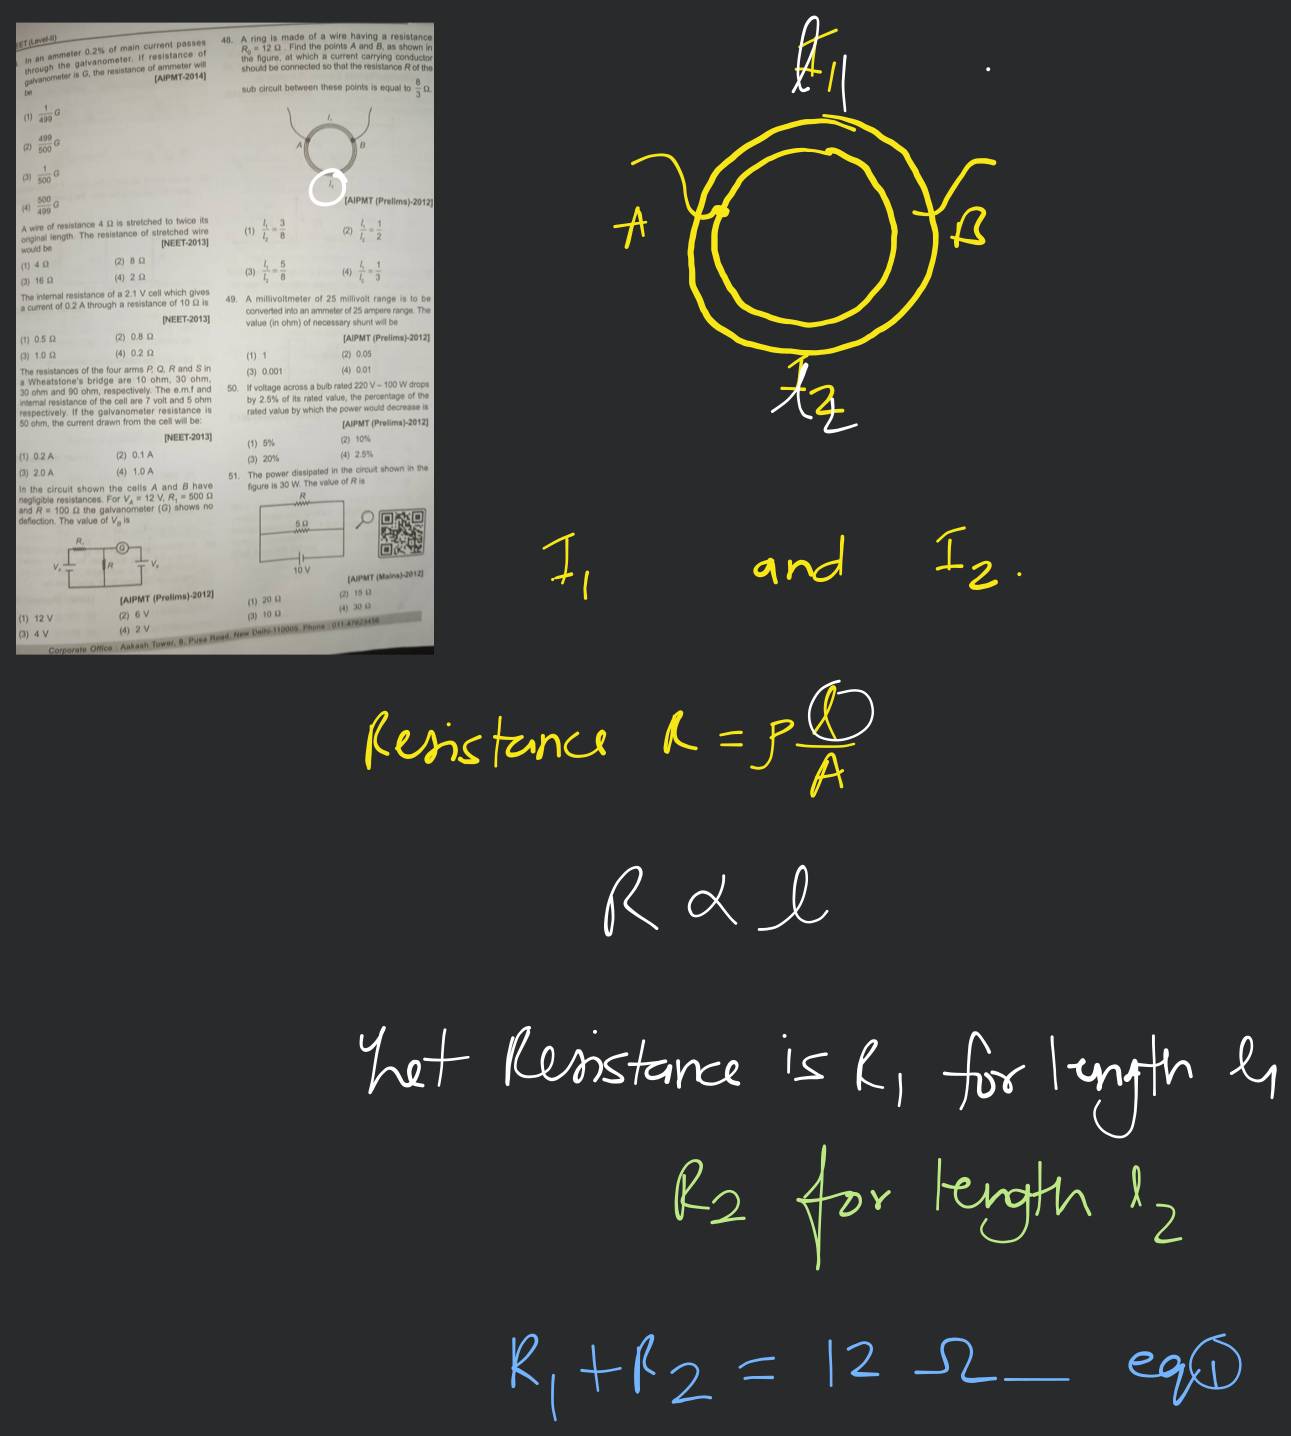 EET (Level-II)
In an ammeter 0.2% of main current passes
through the galvanometer. If resistance of
galvanometer is G, the resistance of ammeter will
be
[AIPMT-2014]
(1) 1/499 G
(2) 499/500 G
(3) 1/500 G
(4) 500/499 G
A wire of resistance 4 Ω is stretched to twice its
original length. The resistance of stretched wire
would be
[NEET-2013]
(1) 4 Ω (2) 8 Ω
(3) 16 Ω (4) 2 Ω
The internal resistance of a 2.1 V cell which gives
a current of 0.2 A through a resistance of 10 Ω is
[NEET-2013]
(1) 0.5 Ω (2) 0.8 Ω
(3) 1.0 Ω (4) 0.2 Ω
The resistances of the four arms P, Q, R and S in
a Wheatstone's bridge are 10 ohm, 30 ohm,
30 ohm and 90 ohm, respectively. The e.m.f and
internal resistance of the cell are 7 volt and 5 ohm
respectively. If the galvanometer resistance is
50 ohm, the current drawn from the cell will be:
[NEET-2013]
(1) 0.2 A (2) 0.1 A
(3) 2.0 A (4) 1.0 A
In the circuit shown the cells A and B have
negligible resistances. For V_A = 12 V, R₁ = 500 Ω
and R = 100 Ω the galvanometer (G) shows no
deflection. The value of V_B is
R₁ G
R
[AIPMT (Prelims)-2012]
(1) 12 V (2) 6 V
(3) 4 V (4) 2 V
48. A ring is made of a wire having a resistance
R₀ = 12 Ω. Find the points A and B, as shown in
the figure, at which a current carrying conductor
should be connected so that the resistance R of the
sub circuit between these points is equal to 8/3 Ω.
l₁
A B
l₂
[AIPMT (Prelims)-2012]
(1) l₁/l₂ = 3/8 (2) l₁/l₂ = 1/2
(3) l₁/l₂ = 5/8 (4) l₁/l₂ = 1/3
49. A millivoltmeter of 25 millivolt range is to be
converted into an ammeter of 25 ampere range. The
value (in ohm) of necessary shunt will be
[AIPMT (Prelims)-2012]
(1) 1 (2) 0.05
(3) 0.001 (4) 0.01
50. If voltage across a bulb rated 220 V – 100 W drops
by 2.5% of its rated value, the percentage of the
rated value by which the power would decrease is
[AIPMT (Prelims)-2012]
(1) 5% (2) 10%
(3) 20% (4) 2.5%
51. The power dissipated in the circuit shown in the
figure is 30 W. The value of R is
R
5 Ω
10 V
[AIPMT (Mains)-2012]
(1) 20 Ω (2) 15 Ω
(3) 10 Ω (4) 30 Ω
Corporate Office : Aakash Tower, 8, Pusa Road, New Delhi-110005. Phone : 011-47623456
l₁
A B
l₂
I₁ and I₂.
Resistance R = ρ l/A
R ∝ l
Let Resistance is R₁ for length l₁
R₂ for length l₂
R₁ + R₂ = 12 Ω — eq①